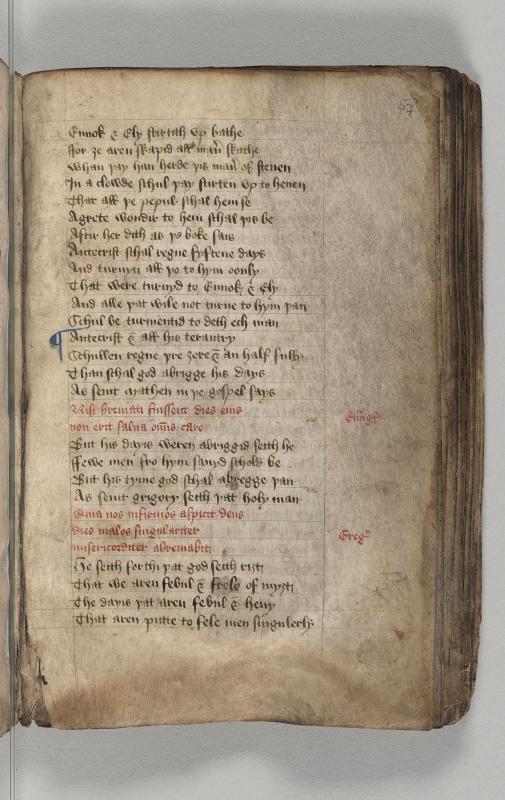 57
Ennok & Ely stirtith vp bathe
ffor ȝe aren skapid all maner skathe
Whan þay han herde þis maner of steuen
In a clowde schul þay stirten vp to heuen
That all þe pepul schal hem se
A grete wondir to hem schal þis be
Aftir her deth as þe boke sais
Antecrist schal regne fyftene days
And turnyn all þo to hym oonly
That were turnyd to Ennok & Ely
And alle þat wile not turne to hym þan
Schul be turmentid to deth ech man
Antecrist & all his terautry
Schullen regne þre ȝere & an half fully
Than schal god abrigge his days
As seint mathen in þe gospel says
Nisi breuiati fuissent dies eius
non erit salua omnis caro
But his dayis weren abriggid seith he
ffewe men fro hym sauyd schold be
But his tyme god schal abregge þan
As seint grigory seith þat holy man
Quia nos infirmos aspicit deus
dies malos singulariter
misericorditer abreuiabit
He seith for thi þat god seith riȝt
That we aren febul & frele of myȝt
The dayis þat aren febul & heuy
That aren putte to fele men singulerly
Greg